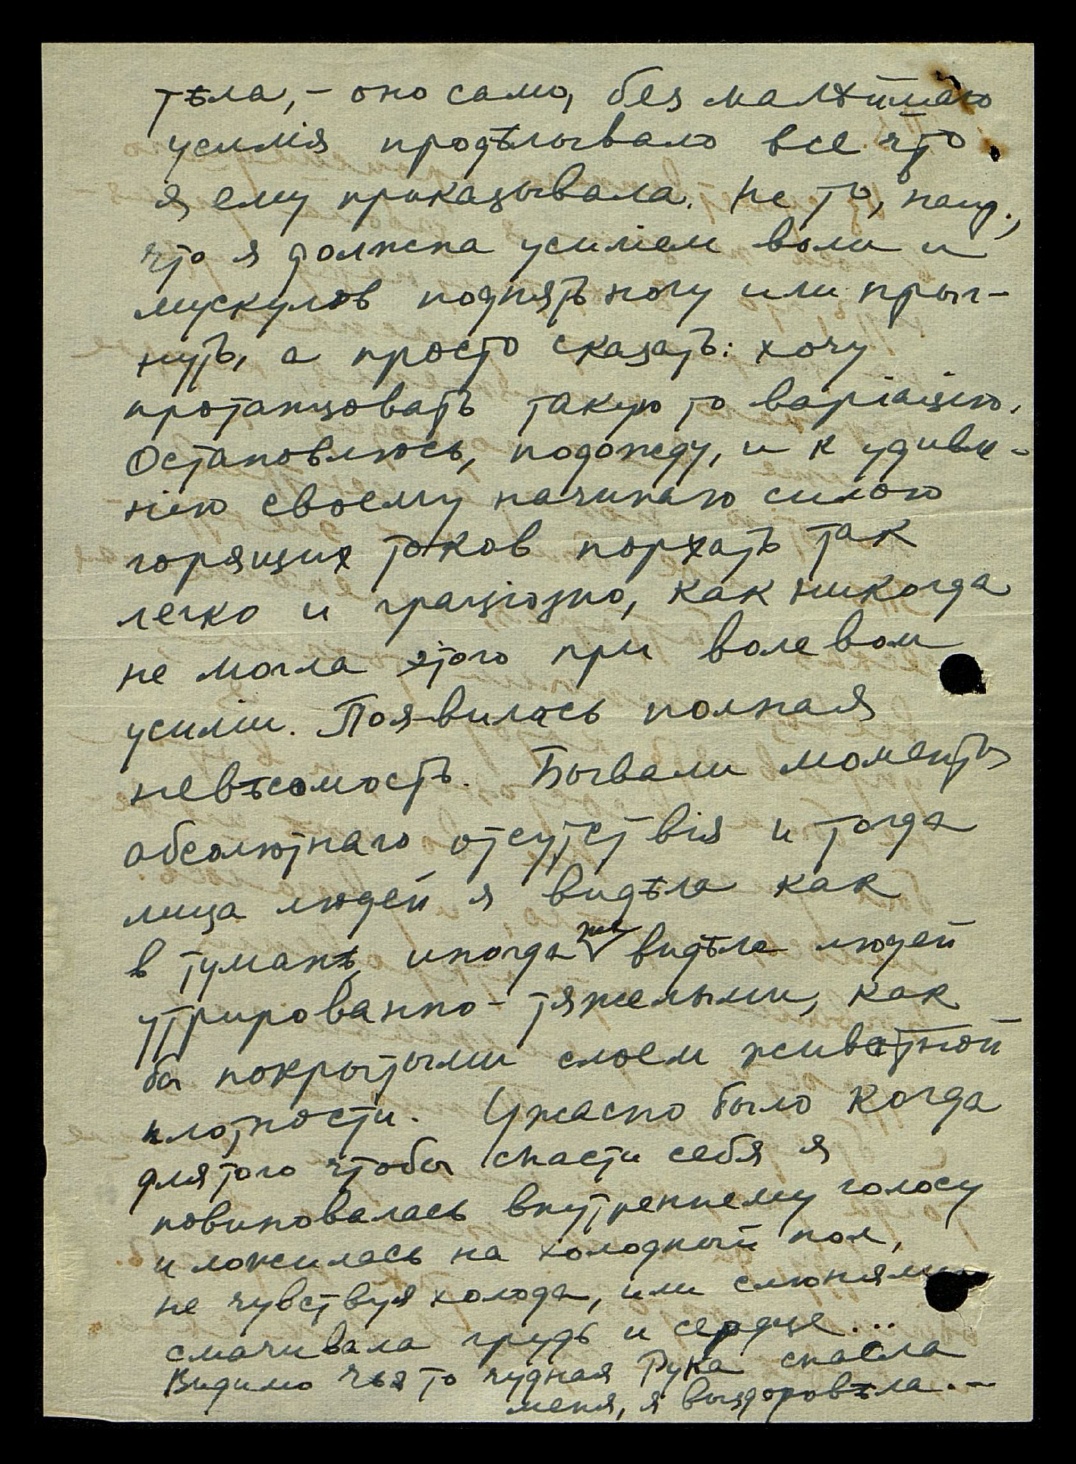 тѣла, – оно само, без малѣйшаго
усилія продѣлывало все что
я ему приказывала. Не то, напр.,
что я должна усиліем воли и
мускулов поднять ногу или прыг-
нуть, а просто сказать: хочу
протанцовать такую то варіацію.
Остановлюсь, подожду, и к удивле-
нію своему начинаю силою
горящих токов порхать так
легко и граціозно, как никогда
не могла этого при волевом
усиліи. Появилась полная
невѣсомость. Бывали моменты
абсолютнаго отсутствія и тогда
лица людей я видѣла как
в туманѣ, иногда же видѣла людей
утрированно-тяжелыми, как
бы покрытыми слоем животной
плотности. Ужасно было когда
для того чтобы спасти себя я
повиновалась внутреннему голосу
и ложилась на холодный пол,
не чувствуя холода, или слюнями
смачивала грудь и сердце...
Видимо чья то чудная Рука спасла
меня, я выздоровѣла. –